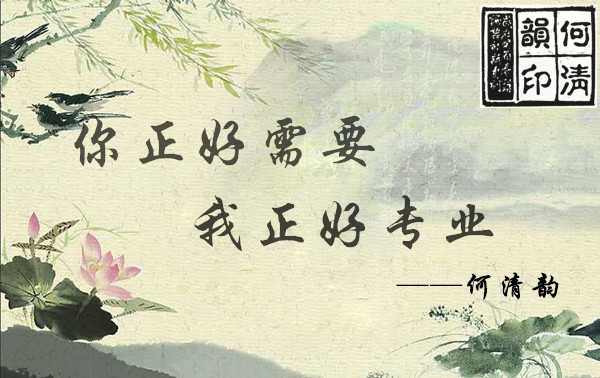 何清
韻印
你正好需要
我正好专业
——何清韵